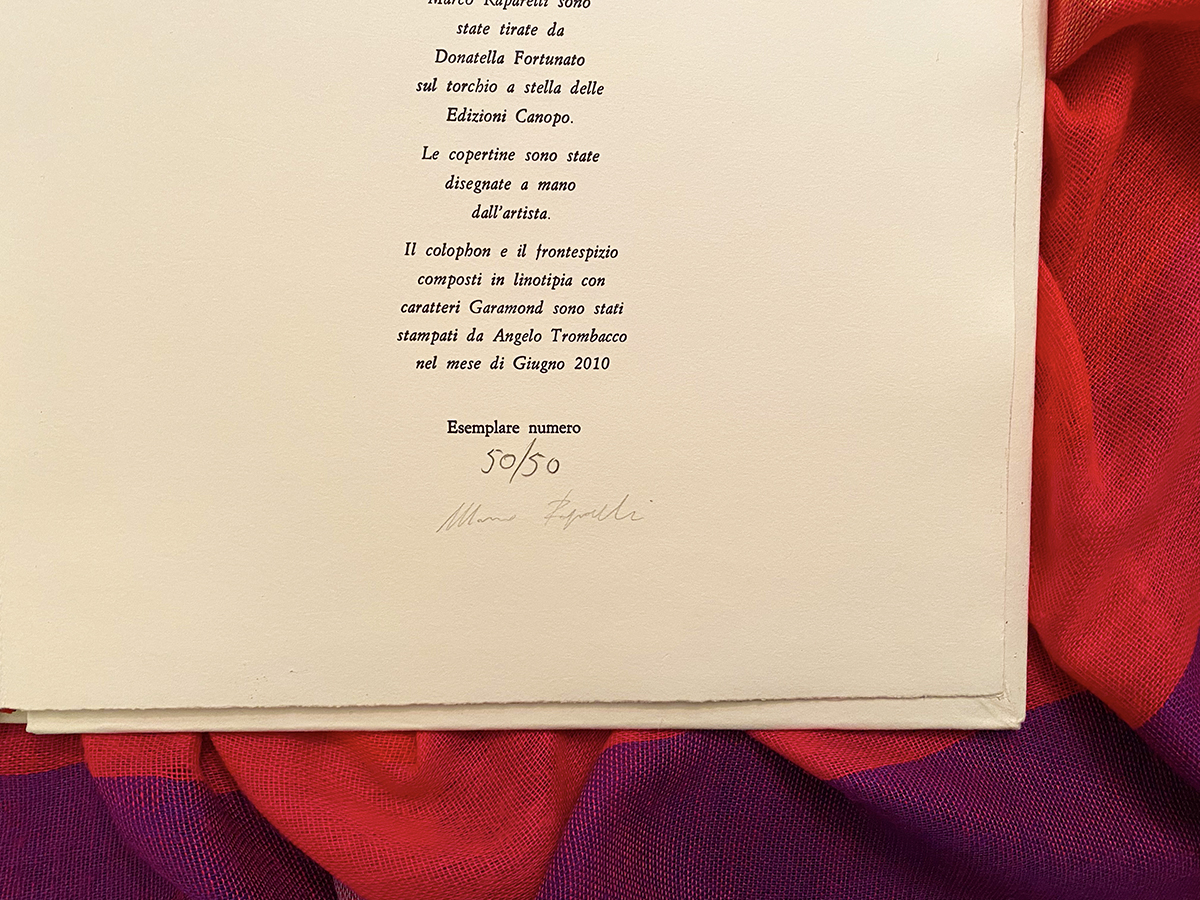 Marco Raparelli sono
state tirate da
Donatella Fortunato
sul torchio a stella delle
Edizioni Canopo.
Le copertine sono state
disegnate a mano
dall'artista.
Il colophon e il frontespizio
composti in linotipia con
caratteri Garamond sono stati
stampati da Angelo Trombacco
nel mese di Giugno 2010
Esemplare numero
50/50
Marco Raparelli